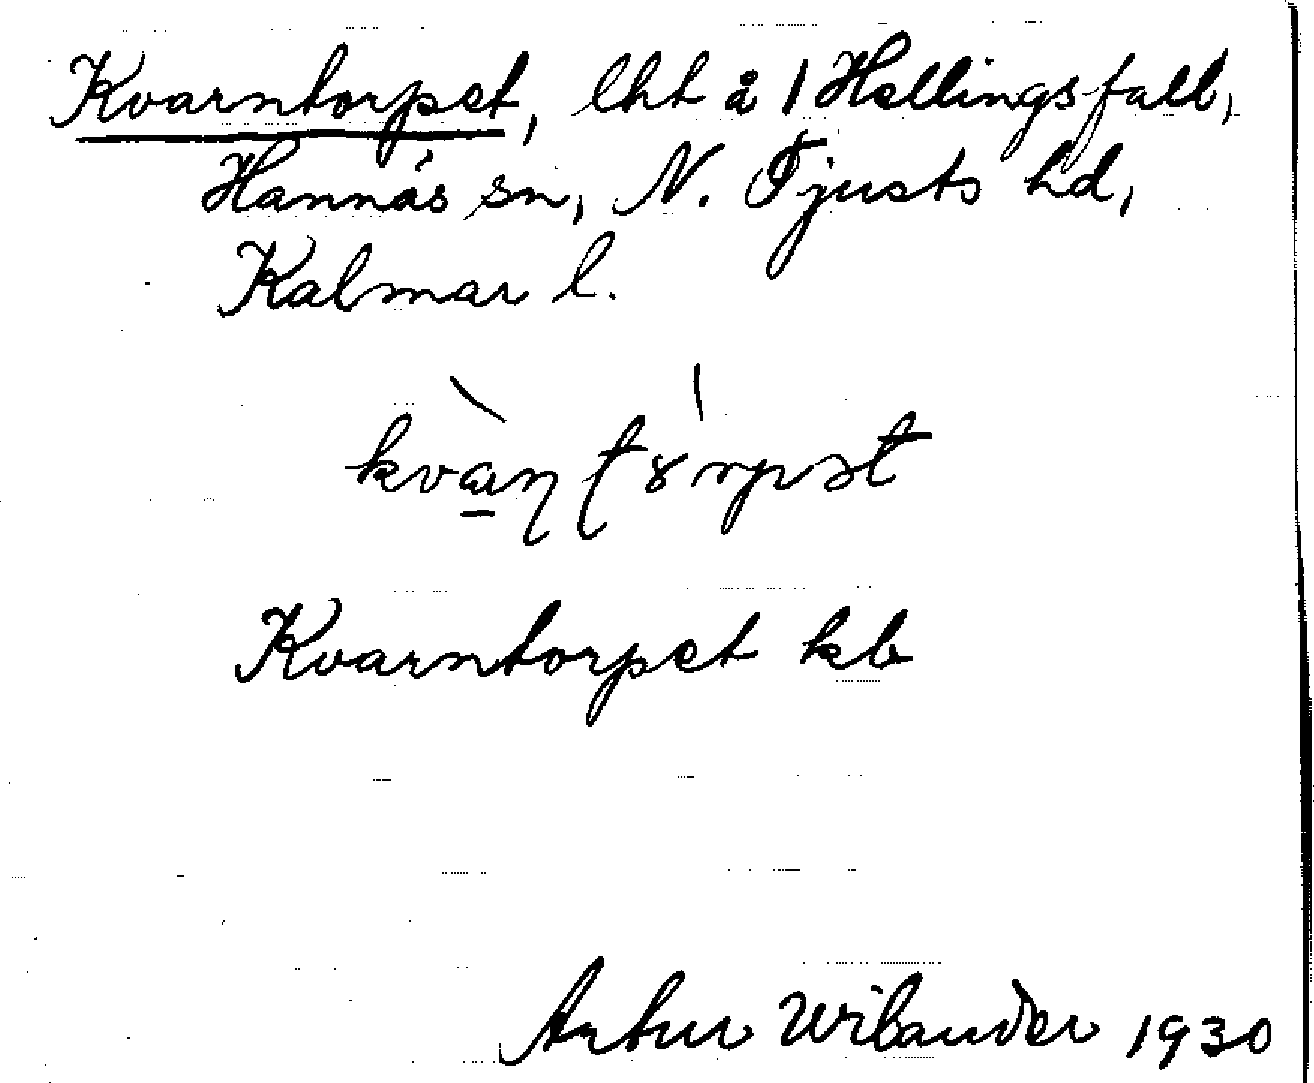 Kvarntorpet, lht å 1 Hellingsfall,
Hannäs sn, N. Tjusts hd,
Kalmar l.
Kvarntorpet kb
Artur Wilander 1930